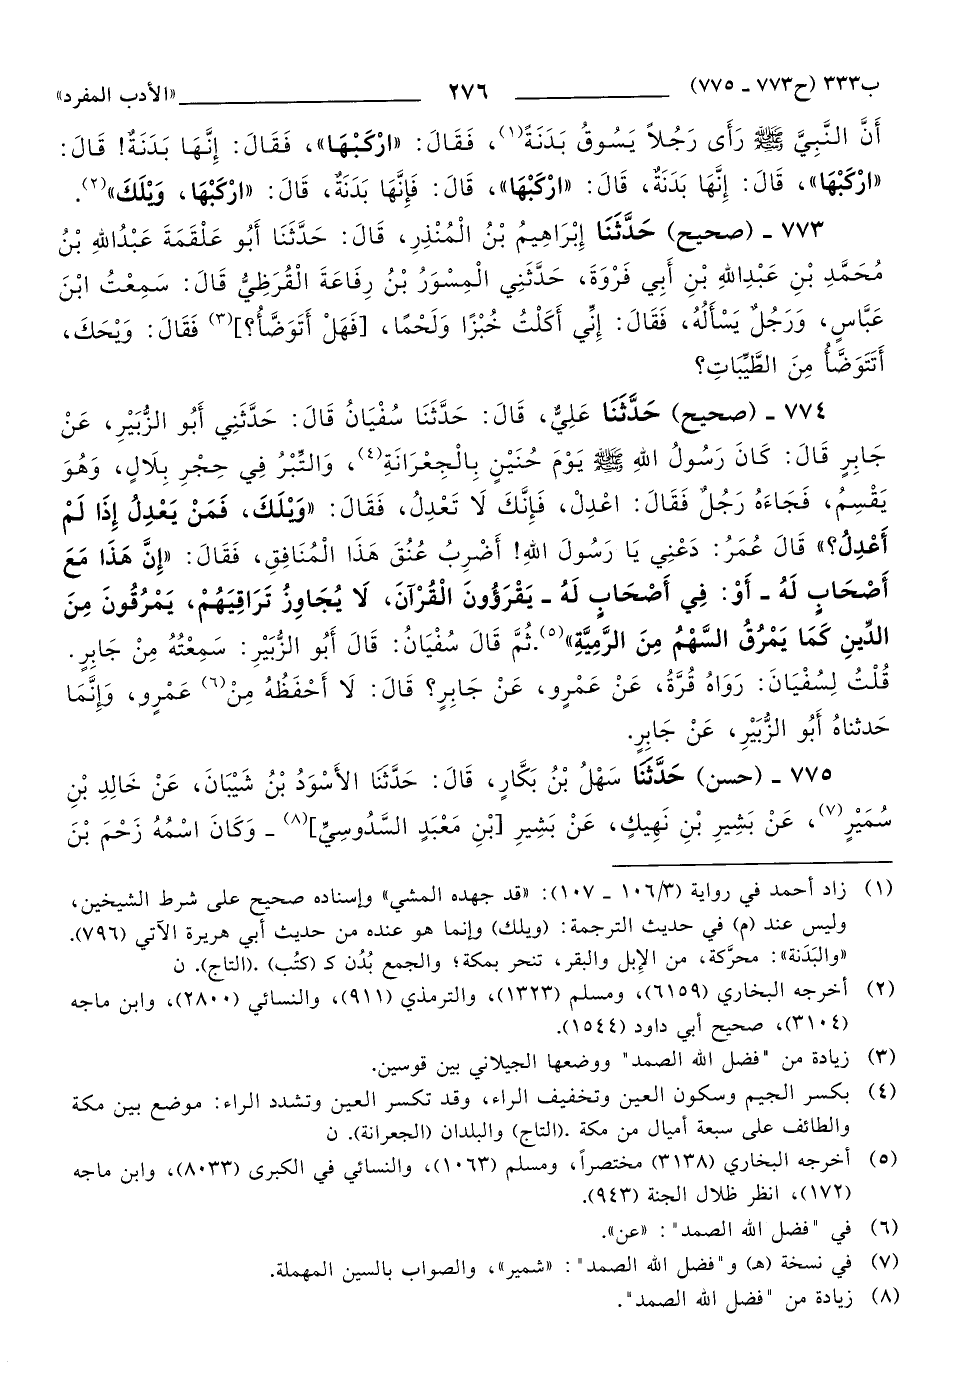 ب٣٣٣ (ح٧٧٣ ـ ٧٧٥) ٢٧٦ «الأدب المفرد»
أَنَّ النَّبِيَّ ﷺ رَأَى رَجُلاً يَسُوقُ بَدَنَةً(١)، فَقَالَ: «ارْكَبْهَا»، فَقَالَ: إِنَّهَا بَدَنَةٌ! قَالَ:
«ارْكَبْهَا»، قَالَ: إِنَّهَا بَدَنَةٌ، قَالَ: «ارْكَبْهَا»، قَالَ: فَإِنَّهَا بَدَنَةٌ، قَالَ: «ارْكَبْهَا، وَيْلَكَ»(٢).
٧٧٣ ـ (صحيح) حَدَّثَنَا إِبْرَاهِيمُ بْنُ الْمُنْذِرِ، قَالَ: حَدَّثَنَا أَبُو عَلْقَمَةَ عَبْدُاللهِ بْنُ
مُحَمَّدِ بْنِ عَبْدِاللهِ بْنِ أَبِي فَرْوَةَ، حَدَّثَنِي الْمِسْوَرُ بْنُ رِفَاعَةَ الْقُرَظِيُّ قَالَ: سَمِعْتُ ابْنَ
عَبَّاسٍ، وَرَجُلٌ يَسْأَلُهُ، فَقَالَ: إِنِّي أَكَلْتُ خُبْزًا وَلَحْمًا، [فَهَلْ أَتَوَضَّأُ؟](٣) فَقَالَ: وَيْحَكَ،
أَتَتَوَضَّأُ مِنَ الطَّيِّبَاتِ؟
٧٧٤ ـ (صحيح) حَدَّثَنَا عَلِيٌّ، قَالَ: حَدَّثَنَا سُفْيَانُ قَالَ: حَدَّثَنِي أَبُو الزُّبَيْرِ، عَنْ
جَابِرٍ قَالَ: كَانَ رَسُولُ اللهِ ﷺ يَوْمَ حُنَيْنٍ بِالْجِعْرَانَةِ(٤)، وَالتِّبْرُ فِي حِجْرِ بِلَالٍ، وَهُوَ
يَقْسِمُ، فَجَاءَهُ رَجُلٌ فَقَالَ: اعْدِلْ، فَإِنَّكَ لَا تَعْدِلُ، فَقَالَ: «وَيْلَكَ، فَمَنْ يَعْدِلُ إِذَا لَمْ
أَعْدِلُ؟» قَالَ عُمَرُ: دَعْنِي يَا رَسُولَ اللهِ! أَضْرِبُ عُنُقَ هَذَا الْمُنَافِقِ، فَقَالَ: «إِنَّ هَذَا مَعَ
أَصْحَابٍ لَهُ ـ أَوْ: فِي أَصْحَابٍ لَهُ ـ يَقْرَؤُونَ الْقُرْآنَ، لَا يُجَاوِزُ تَرَاقِيَهُمْ، يَمْرُقُونَ مِنَ
الدِّينِ كَمَا يَمْرُقُ السَّهْمُ مِنَ الرَّمِيَّةِ»(٥).ثُمَّ قَالَ سُفْيَانُ: قَالَ أَبُو الزُّبَيْرِ: سَمِعْتُهُ مِنْ جَابِرٍ.
قُلْتُ لِسُفْيَانَ: رَوَاهُ قُرَّةُ، عَنْ عَمْرٍو، عَنْ جَابِرٍ؟ قَالَ: لَا أَحْفَظُهُ مِنْ(٦) عَمْرٍو، وَإِنَّمَا
حَدثناهُ أَبُو الزُّبَيْرِ، عَنْ جَابِرٍ.
٧٧٥ ـ (حسن) حَدَّثَنَا سَهْلُ بْنُ بَكَّارٍ، قَالَ: حَدَّثَنَا الأَسْوَدُ بْنُ شَيْبَانَ، عَنْ خَالِدِ بْنِ
سُمَيْرٍ(٧)، عَنْ بَشِيرِ بْنِ نَهِيكٍ، عَنْ بَشِيرِ [بْنِ مَعْبَدٍ السَّدُوسِيِّ](٨) ـ وَكَانَ اسْمُهُ زَحْمَ بْنَ
(١) زاد أحمد في رواية (١٠٦/٣ ـ ١٠٧): «قد جهده المشي» وإسناده صحيح على شرط الشيخين،
وليس عند (م) في حديث الترجمة: (ويلك) وإنما هو عنده من حديث أبي هريرة الآتي (٧٩٦).
«والبَدَنة»: محرَّكة، من الإبل والبقر، تنحر بمكة؛ والجمع بُدُن كـ (كتُب) .(التاج). ن
(٢) أخرجه البخاري (٦١٥٩)، ومسلم (١٣٢٣)، والترمذي (٩١١)، والنسائي (٢٨٠٠)، وابن ماجه
(٣١٠٤)، صحيح أبي داود (١٥٤٤).
(٣) زيادة من "فضل الله الصمد" ووضعها الجيلاني بين قوسين.
(٤) بكسر الجيم وسكون العين وتخفيف الراء، وقد تكسر العين وتشدد الراء: موضع بين مكة
والطائف على سبعة أميال من مكة .(التاج) والبلدان (الجعرانة). ن
(٥) أخرجه البخاري (٣١٣٨) مختصراً، ومسلم (١٠٦٣)، والنسائي في الكبرى (٨٠٣٣)، وابن ماجه
(١٧٢)، انظر ظلال الجنة (٩٤٣).
(٦) في "فضل الله الصمد": «عن».
(٧) في نسخة (هـ) و"فضل الله الصمد": «شمير»، والصواب بالسين المهملة.
(٨) زيادة من "فضل الله الصمد".